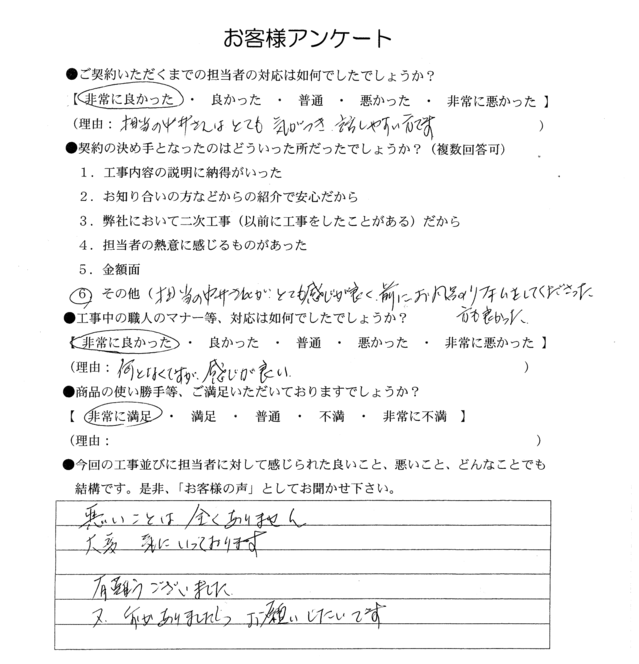 お客様アンケート
●ご契約いただくまでの担当者の対応は如何でしたでしょうか？
【 非常に良かった ・ 良かった ・ 普通 ・ 悪かった ・ 非常に悪かった 】
（理由： 担当の中井さんはとても 気がつき 話しやすい方です ）
●契約の決め手となったのはどういった所だったでしょうか？（複数回答可）
１．工事内容の説明に納得がいった
２．お知り合いの方などからの紹介で安心だから
３．弊社において二次工事（以前に工事をしたことがある）だから
４．担当者の熱意に感じるものがあった
５．金額面
６ その他（担当の中井さんが、とても感じが良く、前にお風呂のリフォームをしてくださった
方も良かった
●工事中の職人のマナー等、対応は如何でしたでしょうか？
【 非常に良かった ・ 良かった ・ 普通 ・ 悪かった ・ 非常に悪かった 】
（理由： 何となくですが、感じが良い ）
●商品の使い勝手等、ご満足いただいておりますでしょうか？
【 非常に満足 ・ 満足 ・ 普通 ・ 不満 ・ 非常に不満 】
（理由： ）
●今回の工事並びに担当者に対して感じられた良いこと、悪いこと、どんなことでも
結構です。是非、「お客様の声」としてお聞かせ下さい。
悪いことは 全くありません
大変 気にいっております
有難うございました
又、何かありましたら お願いしたいです